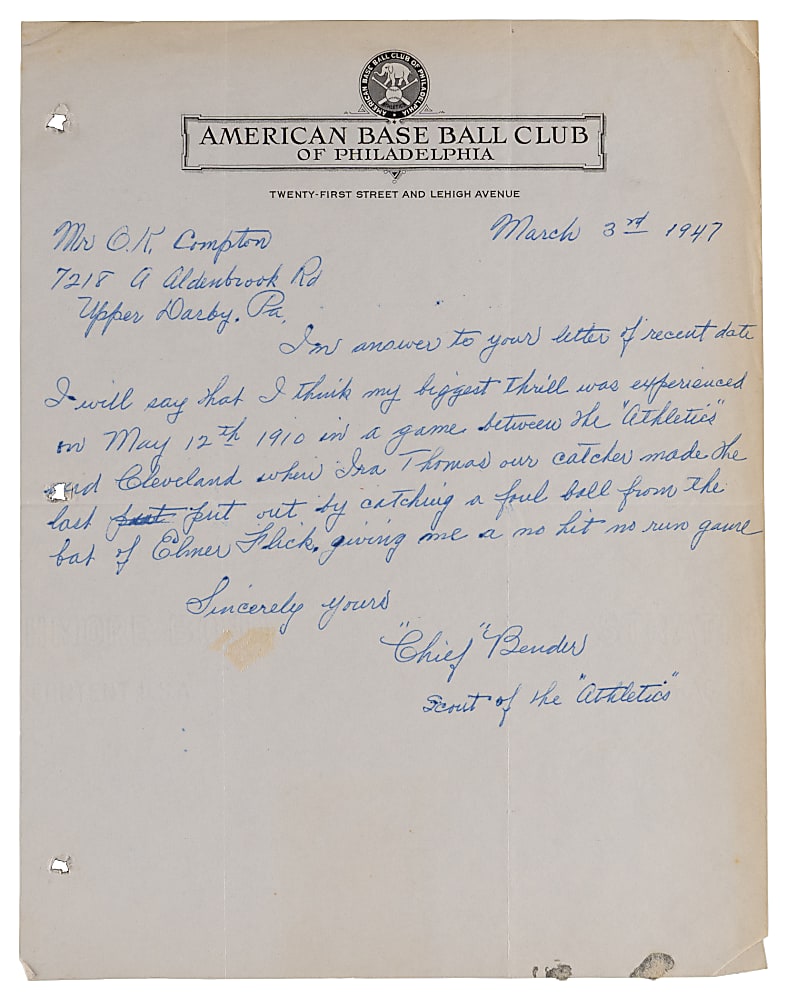 AMERICAN BASE BALL CLUB OF PHILADELPHIA
ATHLETICS
AMERICAN BASE BALL CLUB
OF PHILADELPHIA
TWENTY-FIRST STREET AND LEHIGH AVENUE
March 3rd 1947
Mr O.K. Compton
7218 A Aldenbrook Rd
Upper Darby. Pa.
In answer to your letter of recent date
I will say that I think my biggest thrill was experienced
on May 12th 1910 in a game between the "Athletics"
and Cleveland when Ira Thomas our catcher made the
last put out by catching a foul ball from the
bat of Elmer Flick. giving me a no hit no run game
Sincerely yours
"Chief" Bender
Scout of the "Athletics"